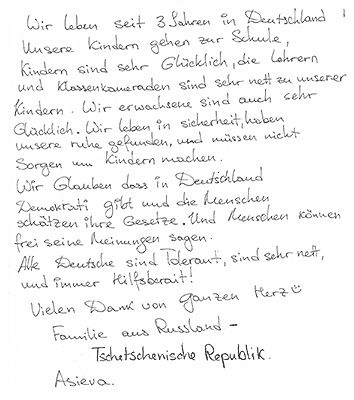 Wir leben seit 3 Jahren in Deutschland
Unsere Kindern gehen zur Schule,
Kindern sind sehr Glücklich, die Lehrern
und Klassenkameraden sind sehr nett zu unserer
Kindern. Wir erwachsene sind auch sehr
Glücklich. Wir leben in sicherheit, haben
unsere ruhe gefunden, und müssen nicht
Sorgen um Kindern machen.
Wir Glauben dass in Deutschland
Demokrati gibt und die Menschen
schätzen ihre Gesetze. Und Menschen können
frei seine Meinungen sagen.
Alle Deutsche sind Tolerant, sind sehr nett,
und immer Hilfsberait!
Vielen Dank von ganzen Herz☺
Familie aus Russland –
Tschetschenische Republik.
Asieva.